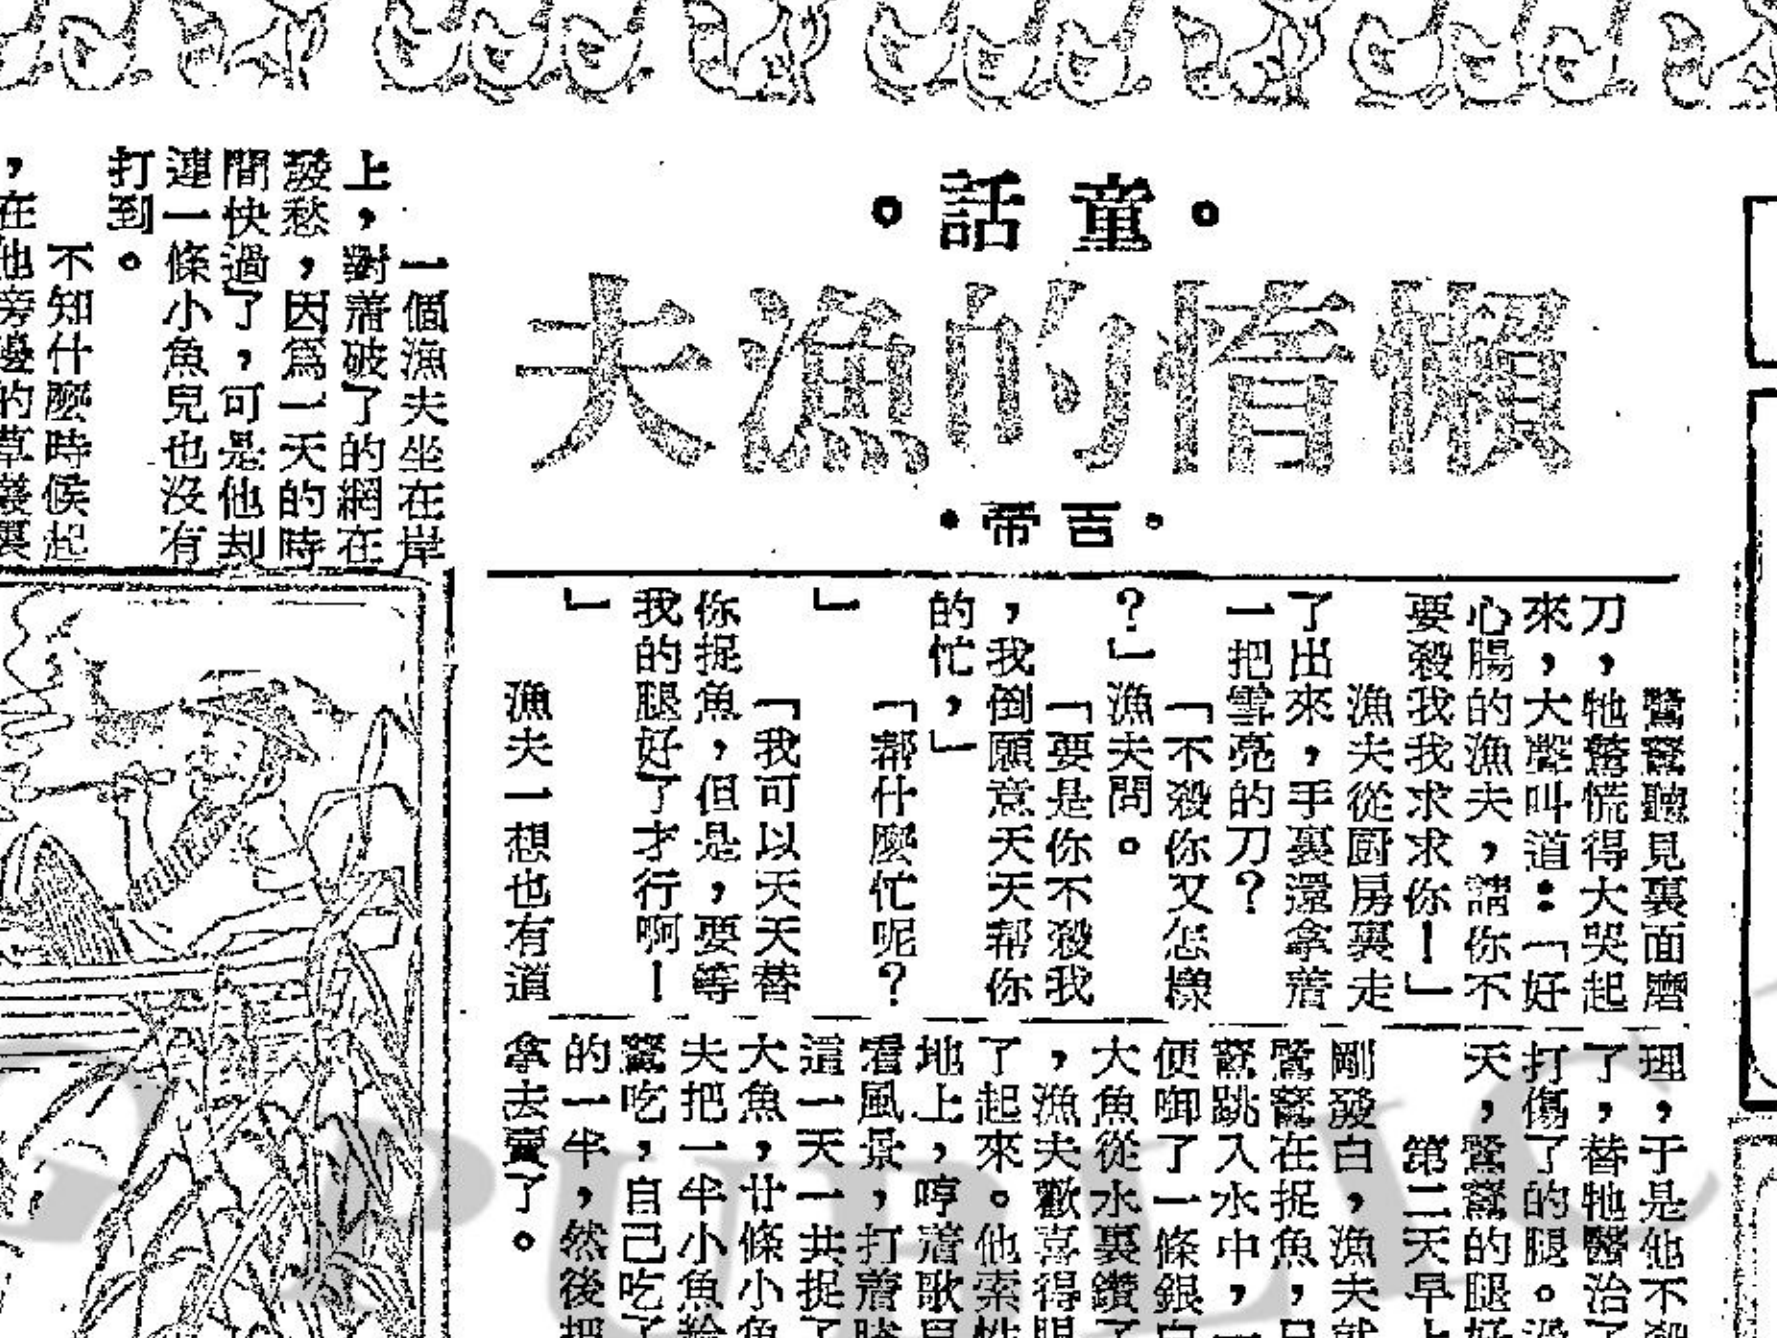 。童話。
懶惰的漁夫
。吉帝。
一個漁夫坐在岸
上，對著破了的網在
發愁，因爲一天的時
間快過了，可是他刦
連一條小魚兒也沒有
打到。
不知什麼時候起
，在他旁邊的草叢裏
鷺鶿聽見裏面磨
刀，牠驚慌得大哭起
來，大聲叫道：「好
心腸的漁夫，請你不
要殺我我求求你！」
漁夫從厨房裏走
了出來，手裏還拿著
一把雪亮的刀？
「不殺你又怎樣
？」漁夫問。
「要是你不殺我
，我倒願意天天帮你
的忙，」
「帮什麼忙呢？
」
「我可以天天替
你捉魚，但是，要等
我的腿好了才行啊！
」
漁夫一想也有道
理，于是他不
了，替牠醫治了
打傷了的腿。
天，鷺鶿的腿好
第二天早上
剛發白，漁夫就
鷺鶿在捉魚，只
鶿跳入水中，一
便啣了一條銀白
大魚從水裏鑽了
，漁夫歡喜得眼
了起來。他索性
地上，哼著歌兒
看風景，打著
這一天一共捉了
大魚，廿條小魚
夫把一半小魚給
鶿吃，自己吃了
的一半，然後把
拿去賣了。
PUBLIC